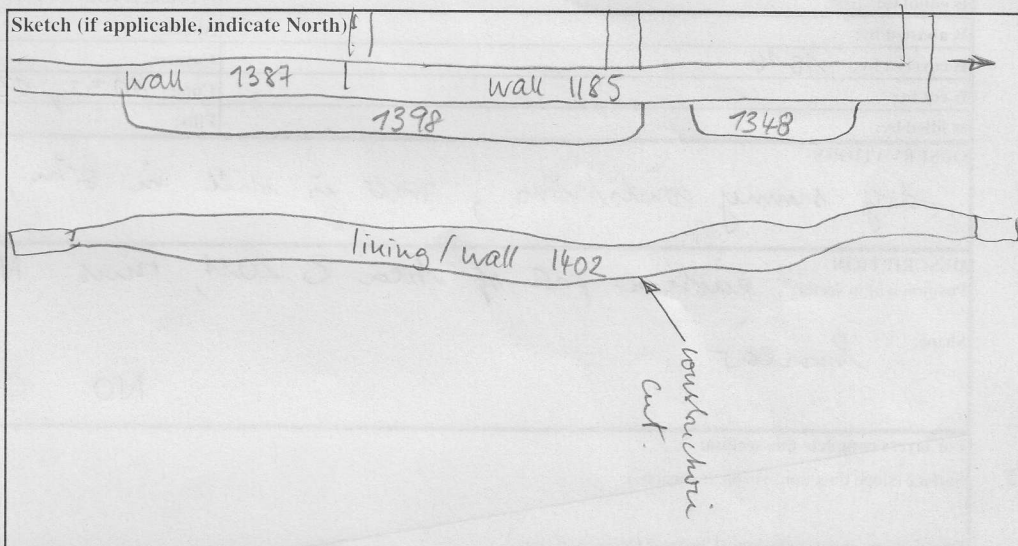 Sketch (if applicable, indicate North)
wall 1387 wall 1185
1398 1348
lining / wall 1402
construction
cut.